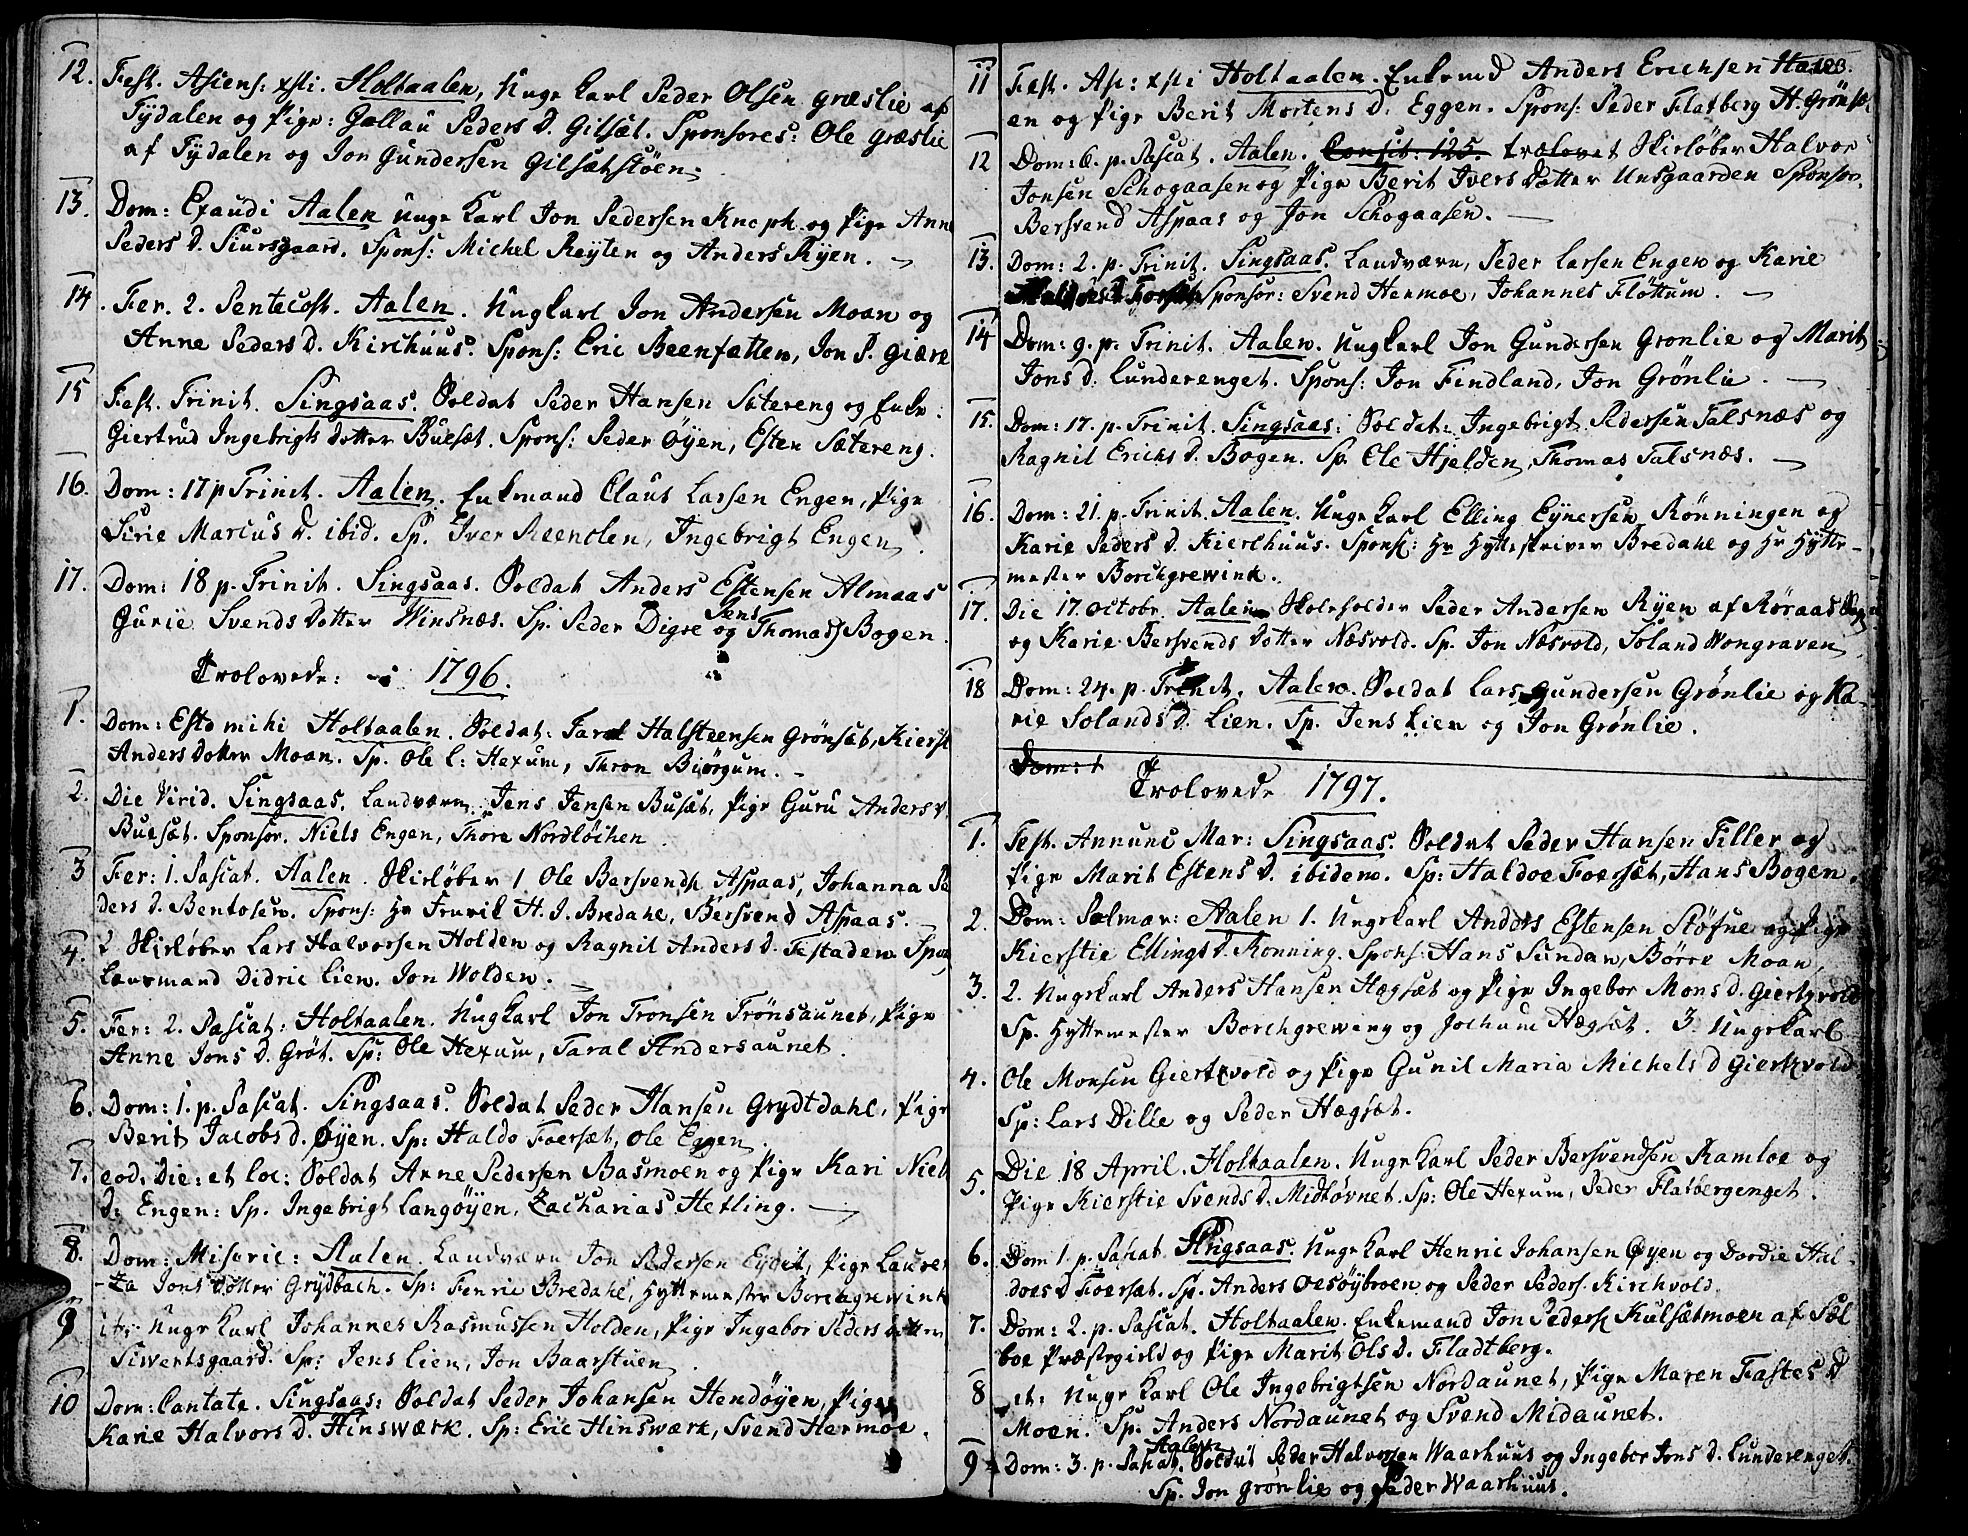 12. Fest. Asiens: xsti. Holtaalen, Unge Karl Peder Olsen græslie af
Tydalen og Pige: Gollau Peders D. Gilsæt. Sponsores: Ole græslie
af Tydalen og Jon Gundersen Gilsætstöen.
13. Dom: Exaudi Aalen unge Karl Jon Pedersen Knoph og Pige Anne
Peders D. Siursgaard. Spons: Michel Reyten og Anders Ryen.
14. Fer. 2. Pentecost. Aalen. Ungkarl Jon Andersen Moan og
Anne Peders D. Kirchuus. Spons: Eric Beenfatten, Jon P. Giære
15 Fest. Trinit. Singsaas. Soldat Peder Hansen Sætereng og Enke:
Giertrud Ingebrigts dotter Buesæt. Spons: Peder Öyen, Esten Sætereng.
16. Dom: 17 p Trinit. Aalen. Enkmand Claus Larsen Engen, Pige
Sirie Marcus D. ibid. Sp. Iver Reentlen, Ingebrigt Engen.
17. Dom: 18 p. Trinit. Singsaas. Soldat Anders Estensen Almaas
Gurie Svends dotter Winsnes. Sp. Peder Digre og Jens Thomas Bogen.
Trolovede: i 1796.
1. Dom: Esto mihi Holtaalen. Soldat: Taral Halsteensen Grönsæt, Kierst
Anders dotter Moan. Sp. Ole L: Hexum, Thron Biörgum.
2. Die Virid. Singsaas. Landværn Jens Jensen Busæt, Pige Guru Anders D.
Buesæt. Sponsor. Niels Engen, Thore Nordlöchen.
3 Fer: 1. Pascat. Aalen. Skirlöber 1 Ole Bersvends. Aspaas, Johanna Pe
ders D. Bentosen. Spons: Hr Fenrik H. J. Bredahl, Bersvend Aspaas.
4. 2 Skirlöber Lars Halvorsen Holden og Ragnil Anders D. Festaden Spon
Lensmand Didric Lien. Jon Wolden.
5. Fer: 2. Pascat: Holtaalen. Ungkarl Jon Tronsen Trönsaunet, Pige
Anne Jons D. Gröt. Sp: Ole Hexum, Taral Andersaunet.
6. Dom: 1. p. Pascat. Singsaas. Soldat Peder Hansen Grydtdahl, Pige
Berit Jacobs D. Øyen. Sp: Haldo Foersæt, Ole Eggen.
7. eod. Die: et loc: Soldat Arne Pedersen Basmoen og Pige Kari Niels
D: Engen: Sp. Ingebrigt Langöyen, Zacharias Hetling.
8. Dom: Miseric: Aalen. Landværn Jon Pedersen Eydet, Pige Laure
-za Jons dotter Grydbach. Sp: Fenric Bredahl, Hyttemester Borchgrewink
9 it: Unge Karl Johannes Rasmussen Holden, Pige Ingebor Peders dotter
Siwertsgaard. Sp: Jens Lien, Jon Baarstuen.
10 Dom: Cantate. Singsaas: Soldat Peder Johansen Hendöyen, Pige
Karie Halvors D. Hinswærk. Sp: Eric Hinswærk, Svend Hermoe.
123.
11 Fest. Asc: xsti Holtaalen. Enkemd Anders Erichsen
en og Pige Berit Mortens D. Eggen. Spons: Peder Flatberg H. Grönsæt
12 Dom: 6. p. Pascat. Aalen. Consit: 125. trolovet Skirlöber Halvor
Jonsen Schogaasen og Pige Berit Ivers Dotter Unsgaarden Sponsor.
Bersvend Aspaas og Jon Schogaasen.
13. Dom: 2. p. Trinit. Singsaas. Landværn, Peder Larsen Engen og Karie
Sponsor: Svend Hermoe, Johannes Flöttum.
14 Dom: 9. p. Trinit. Aalen. Ungkarl Jon Gundersen Gronlie og Marit
Jons D. Lunderenget. Spons: Jon Findland, Jon Grönlie.
15. Dom: 17. p. Trinit. Singsaas: Soldat: Ingebrigt Pedersen Talsnæs og
Ragnil Erichs D. Bogen. Sp. Ole Hjelden, Thomas Talsnæs.
16. Dom: 21. p. Trinit. Aalen. Unge Karl Elling Eynersen Rönningen og
Karie Peders D. Kierchuus. Spons: Hr Hytteskriver Bredahl og Hr Hytte-
mester Borchgrewink.
17. Die 17. Octobr. Aalen Skoleholder Peder Andersen Ryen af Röraas
og Karie Bersvends dotter Næsvold. Sp. Jon Næsvold, Soland Wongraven
18 Dom: 24. p. Trinit. Aalen. Soldat Lars Gundersen Grönlie og Ka-
rie Solands D. Lien. Sp. Jens Lien og Jon Grönlie.
Dom: 1
Trolovede 1797.
1. Fest. Annunc Mar: Singsaas. Soldat Peder Hansen Filler og
Pige Marit Estens D. ibidem. Sp: Haldoe Foersæt, Hans Bogen.
2. Dom: Palmar: Aalen 1. Ungekarl Anders Estensen Stöfne og Pige
Kierstie Ellings D. Ronning. Spons: Hans Sundan, Börre Moan
3. 2. Ungekarl Anders Hansen Hægsæt og Pige Ingebor Mons D. Giertzvold
Sp. Hyttemester Borchgreweng og Jochum Hægsæt. 3 Ungekarl
4. Ole Monsen Giertzvold og Pige Gunil Maria Michels D Giertzvold
Sp: Lars Dille og Peder Hægsæt.
5. Die 18 April. Holtaalen. Unge Karl Peder Bersvendsen Ramloe og
Pige Kierstie Svends D. Midtövnet. Sp: Ole Hexum, Peder Flatbergenget.
6. Dom 1. p. Pascat. Singsaas. Unge Karl Henric Johansen Øyen og Dordie Hal-
does D Foersæt. Sp. Anders Oesöybroen og Peder Peders. Kirchvold
7. Dom: 2. p. Pascat. Holtaalen. Enkemand Jon Peders. Kulsætmoen af Sæl
boe Præstegield og Pige Marit Ols D. Fladtberg.
8 it: Unge Karl Ole Ingebrigtsen Nordaunet, Pige Maren Fastes D
Moen. Sp. Anders Nordaunet og Svend Midaunet.
9. Dom: 3. p. Pascat. Aalen Soldat Peder Halvorsen Waarhuus og Ingebor Jons D. Lunderenget.
Sp. Jon grönlie og Peder Waarhuus.